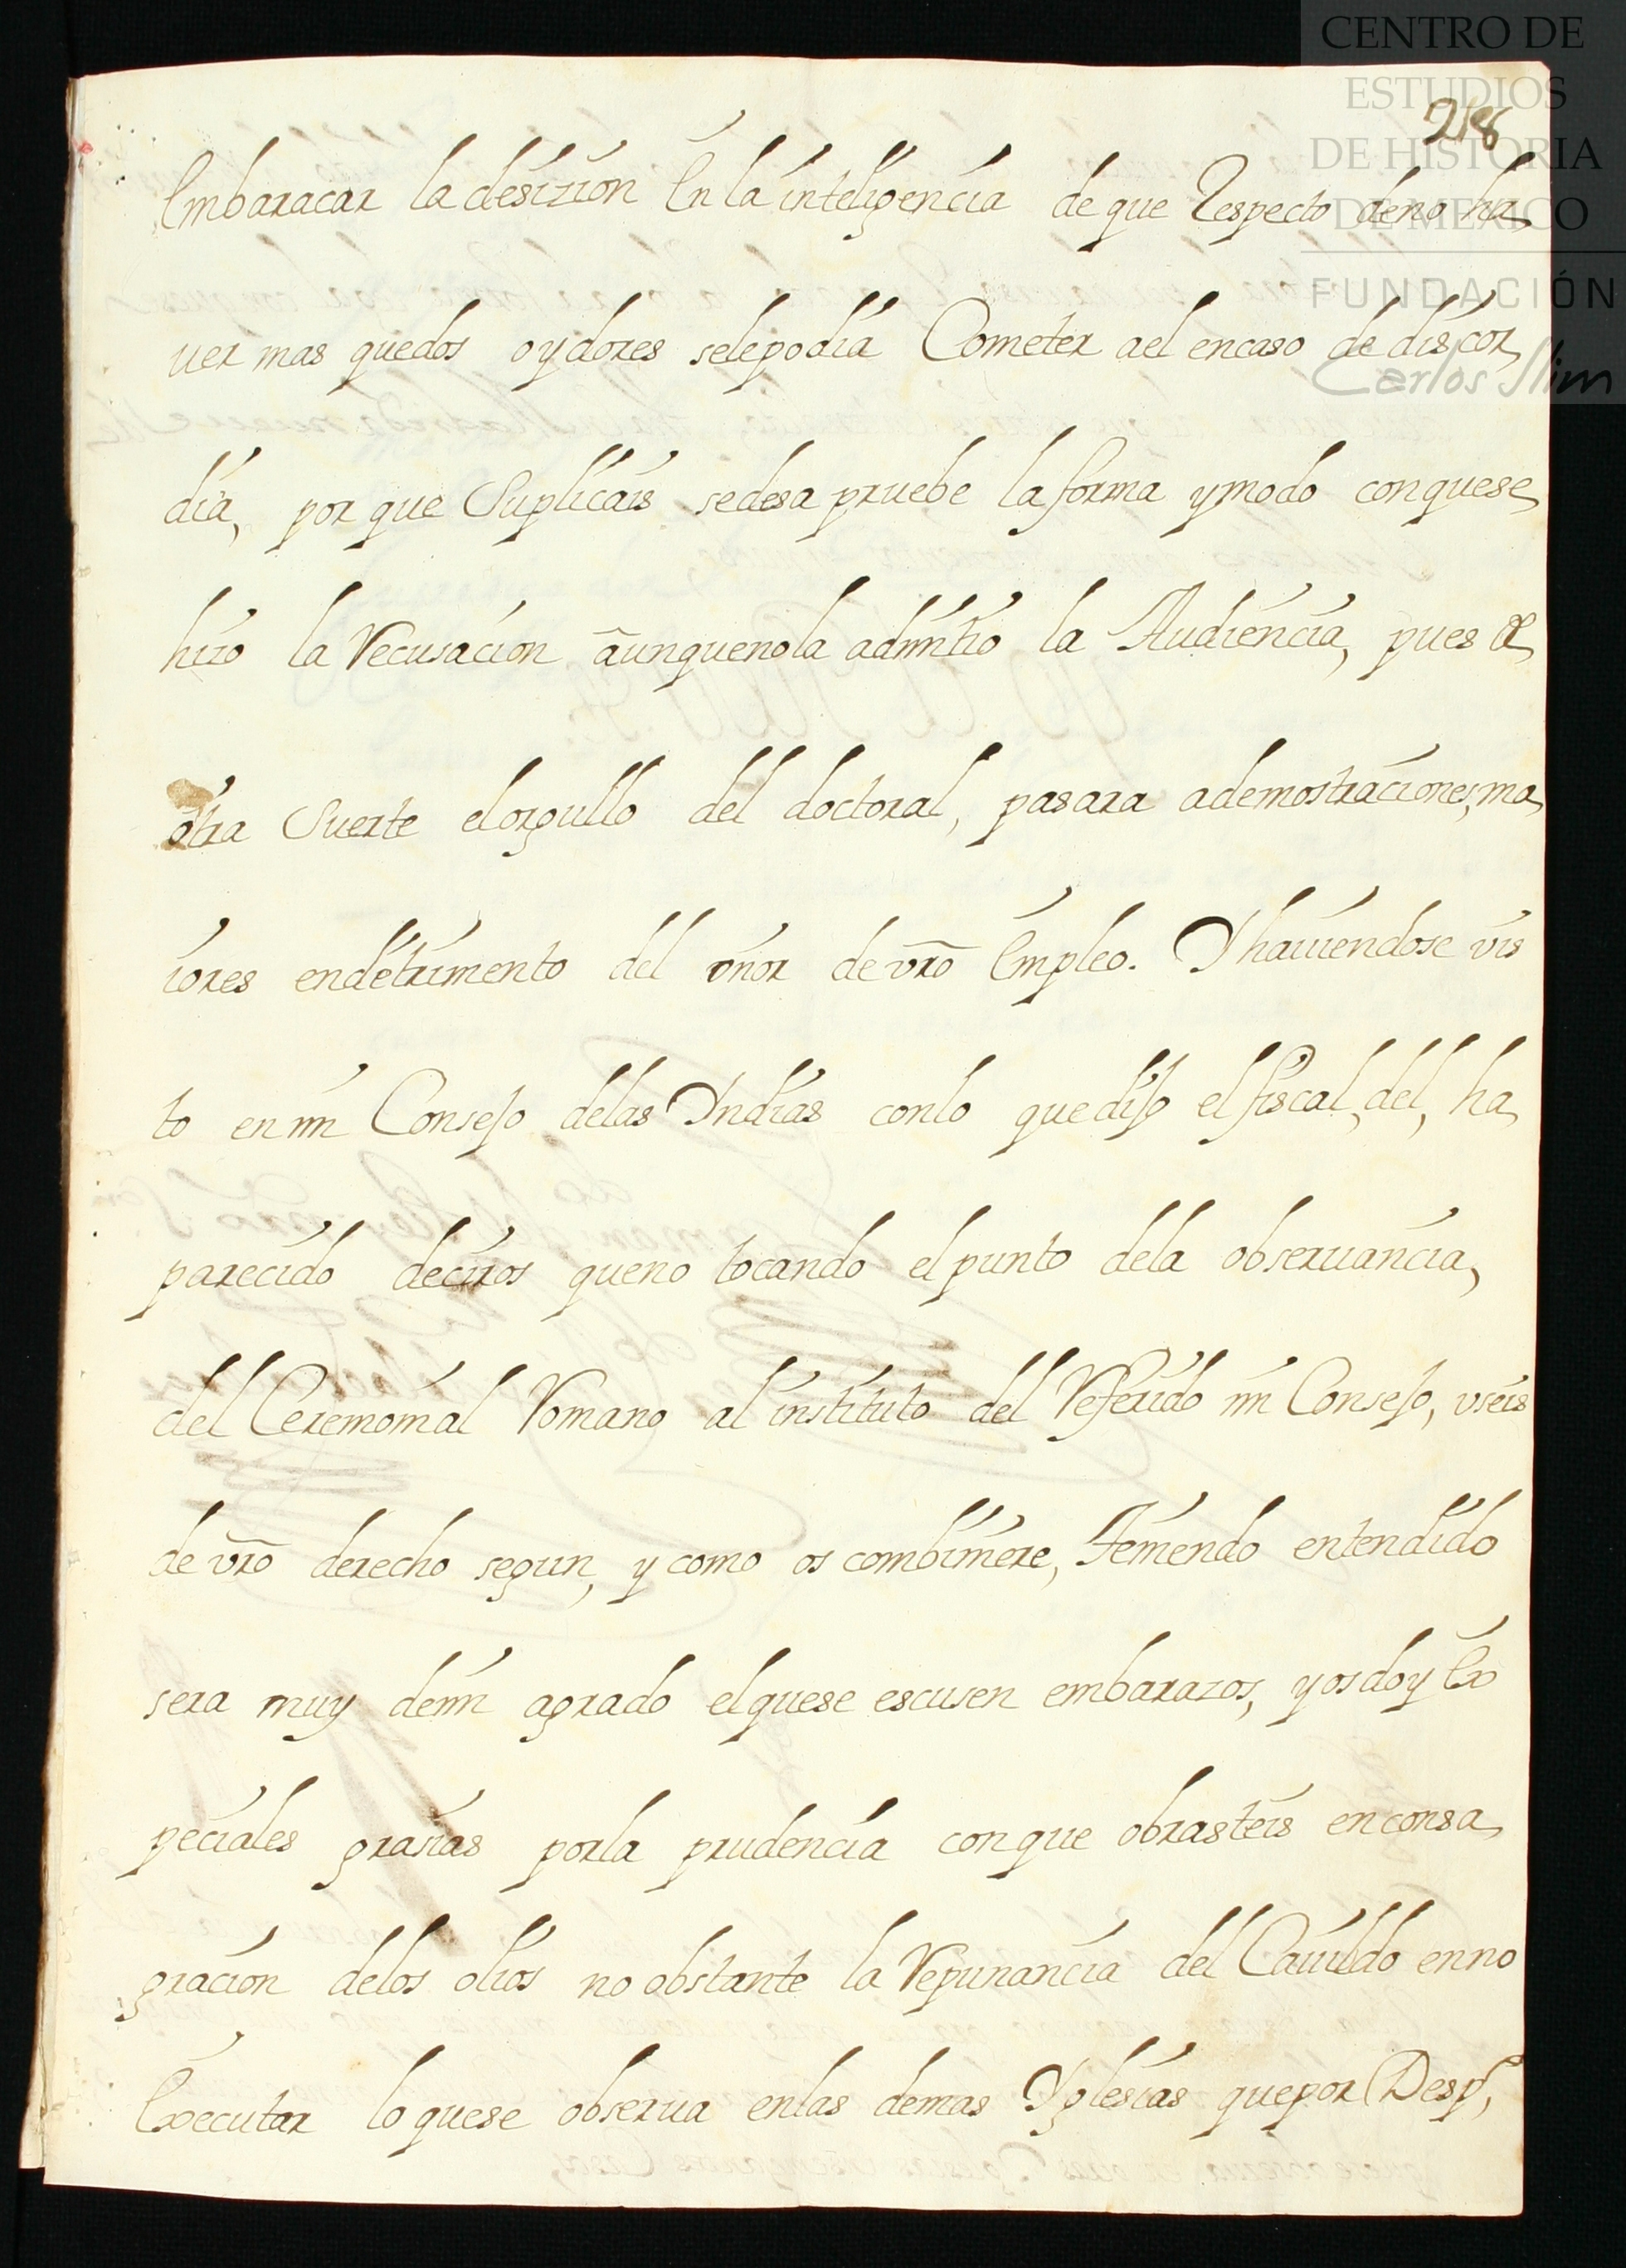 CENTRO DE
ESTUDIOS
DE HISTORIA
DE MEXICO
FUNDACIÓN
Carlos Slim
218
Embaraçar la desizion En la inteligencia de que Respecto deno ha,
uer mas quedos oydores selepodia Cometer ael encaso de discor,
dia, por que Suplicais sedesa pruebe la forma ymodo conquese,
hizo la Recusacion aunquenola admitio la Audiencia, pues de,
otra Suerte elorgullo del doctoral, pasara ademostraciones, ma,
iores endetrimento del onor de vro Empleo. Y hauiendose vis
to en mi Consejo delas Yndias conlo quedijo el fiscal, del, ha,
parecido deciros queno tocando el punto dela obseruancia,
del Ceremonial Romano al instituto del Referido mi Consejo, vseis
de vro derecho segun, y como os combiniere, Teniendo entendido
sera muy demi agrado elquese escusen embarazos, y os doy Ex
peciales gracias porla prudencia conque obrasteis enconsa,
gracion delos olios no obstante la Repunancia del Cauildo enno
Executar lo quese obserua enlas demas Yglesias quepor Desp,